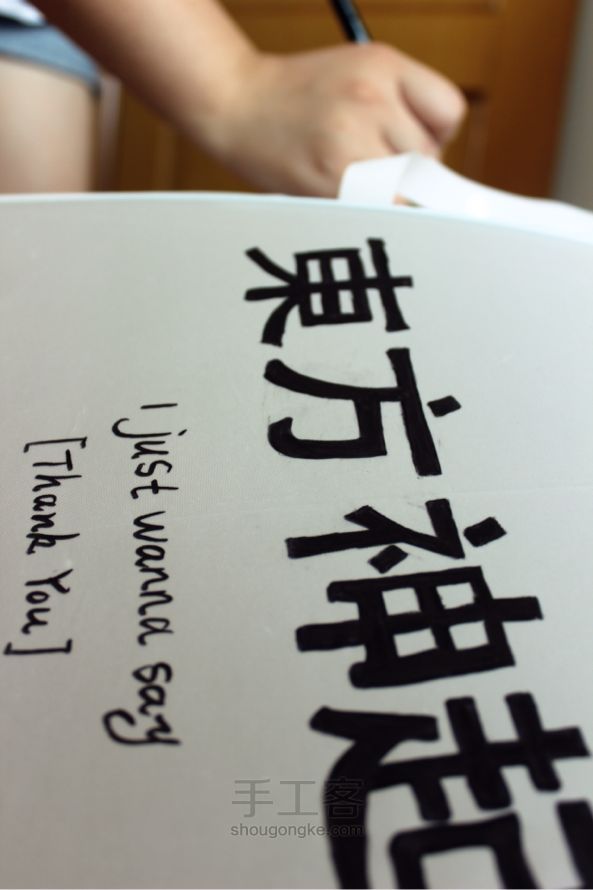 東方神起
I just wanna say
[Thank You]
手工客
shougongke.com